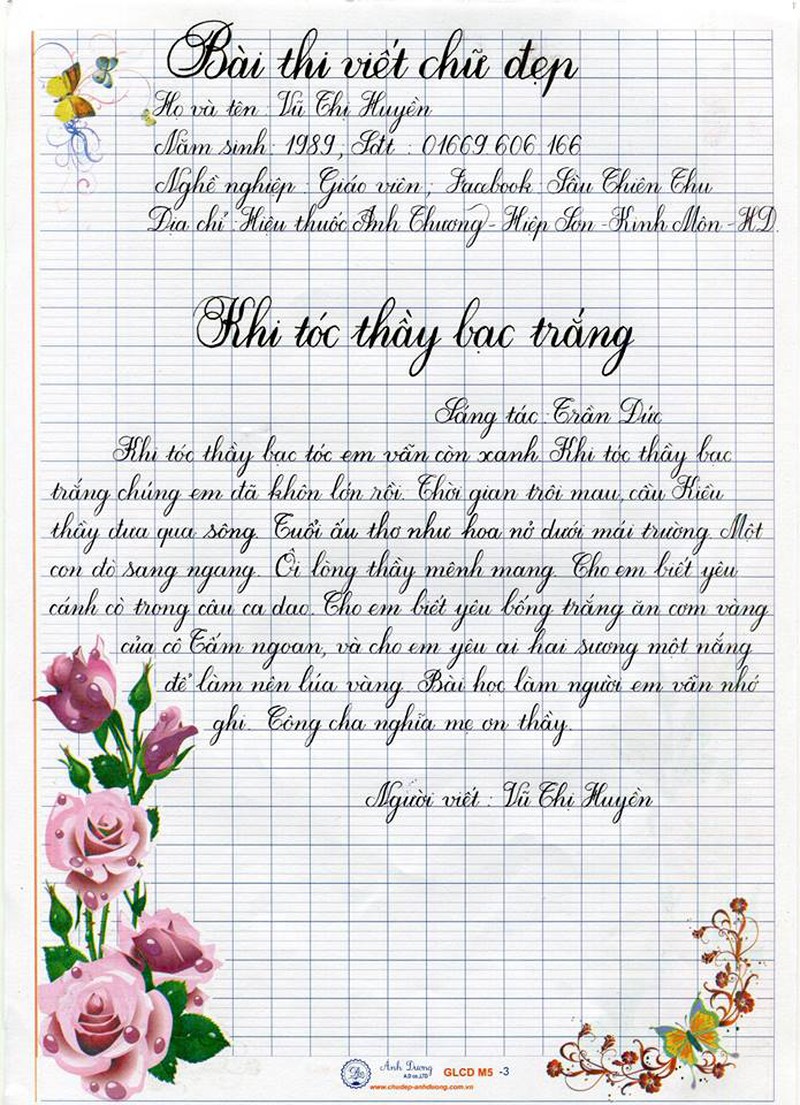 Bài thi viết chữ đẹp
Họ và tên : Vũ Thị Huyền
Năm sinh : 1989 ; Sđt : 01669 606 166
Nghề nghiệp : Giáo viên ; Facebook : Sầu Thiên Thu
Địa chỉ : Hiệu thuốc Ánh Thương - Hiệp Sơn - Kinh Môn - HD.
Khi tóc thầy bạc trắng
Sáng tác : Trần Đức
Khi tóc thầy bạc tóc em vẫn còn xanh. Khi tóc thầy bạc
trắng chúng em đã khôn lớn rồi. Thời gian trôi mau, cầu Kiều
thầy đưa qua sông. Tuổi ấu thơ như hoa nở dưới mái trường. Một
con đò sang ngang. Ôi lòng thầy mênh mang. Cho em biết yêu
cánh cò trong câu ca dao. Cho em biết yêu bống trắng ăn cơm vàng
của cô Tấm ngoan, và cho em yêu ai hai sương một nắng
để làm nên lúa vàng. Bài học làm người em vẫn nhớ
ghi. Công cha nghĩa mẹ ơn thầy.
Người viết : Vũ Thị Huyền
Ánh Dương
A.D co.,LTD
GLCD M5 -3
www.chudep-anhduong.com.vn